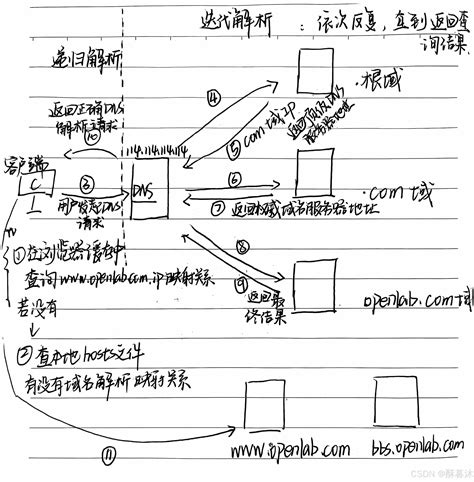 迭代解析 : 依次反复,直到返回查
询结果.
递归解析
返回正确DNS
解析请求
⑩
④
.根域
⑤ com域IP
返回顶级DNS
服务器地址
114.114.114.114
客户端
C
③
用户发起DNS
请求
DNS
⑥
⑦ 返回权威域名服务器地址
.com 域
①在浏览器缓存中
查询www.openlab.com.ip映射关系
若没有
⑧
⑨
返回最
终结果
openlab.com域
②查本地hosts文件
有没有域名解析映射关系
⑪
www.openlab.com
bbs.openlab.com
CSDN @酥暮沐